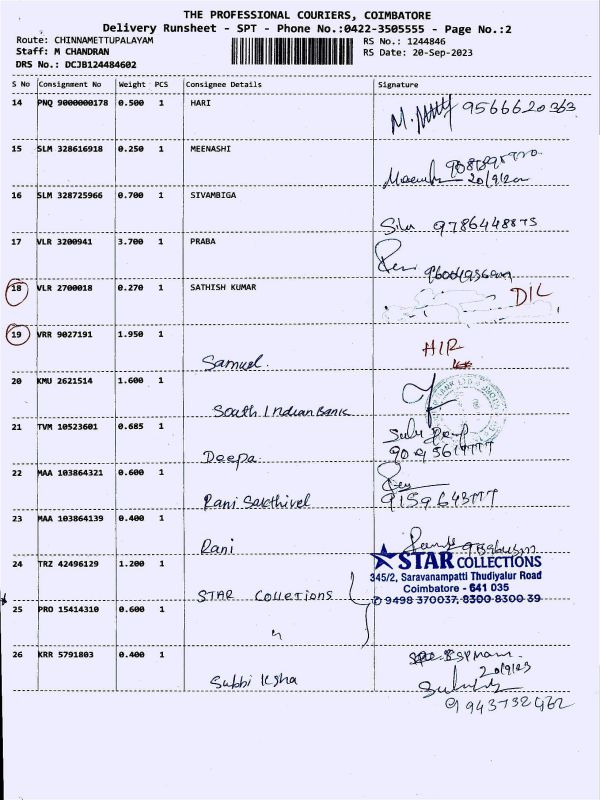 THE PROFESSIONAL COURIERS, COIMBATORE
Delivery Runsheet - SPT - Phone No.:0422-3505555 - Page No.:2
Route: CHINNAMETTUPALAYAM RS No.: 1244846
Staff: M CHANDRAN RS Date: 20-Sep-2023
DRS No.: DCJB124484602
S No Consignment No Weight PCS Consignee Details Signature
14 PNQ 9000000178 0.500 1 HARI 9566620363
15 SLM 328616918 0.250 1 MEENASHI
20/9/20
16 SLM 328725966 0.700 1 SIVAMBIGA
9786448875
17 VLR 3200941 3.700 1 PRABA
18 VLR 2700018 0.270 1 SATHISH KUMAR
DIL
19 VRR 9027191 1.950 1
Samuel. HIR
20 KMU 2621514 1.600 1
South Indian Bank
21 TVM 10523601 0.685 1
Deepa
22 MAA 103864321 0.600 1
Rani Sakthivel
23 MAA 103864139 0.400 1
Rani
STAR COLLECTIONS
24 TRZ 42496129 1.200 1
345/2, Saravanampatti Thudiyalur Road
Coimbatore - 641 035
STAR Colletions
9498 370037, 8300 8300 39
25 PRO 15414310 0.600 1
"
26 KRR 5791803 0.400 1
20/9/23
Subbi Ksha